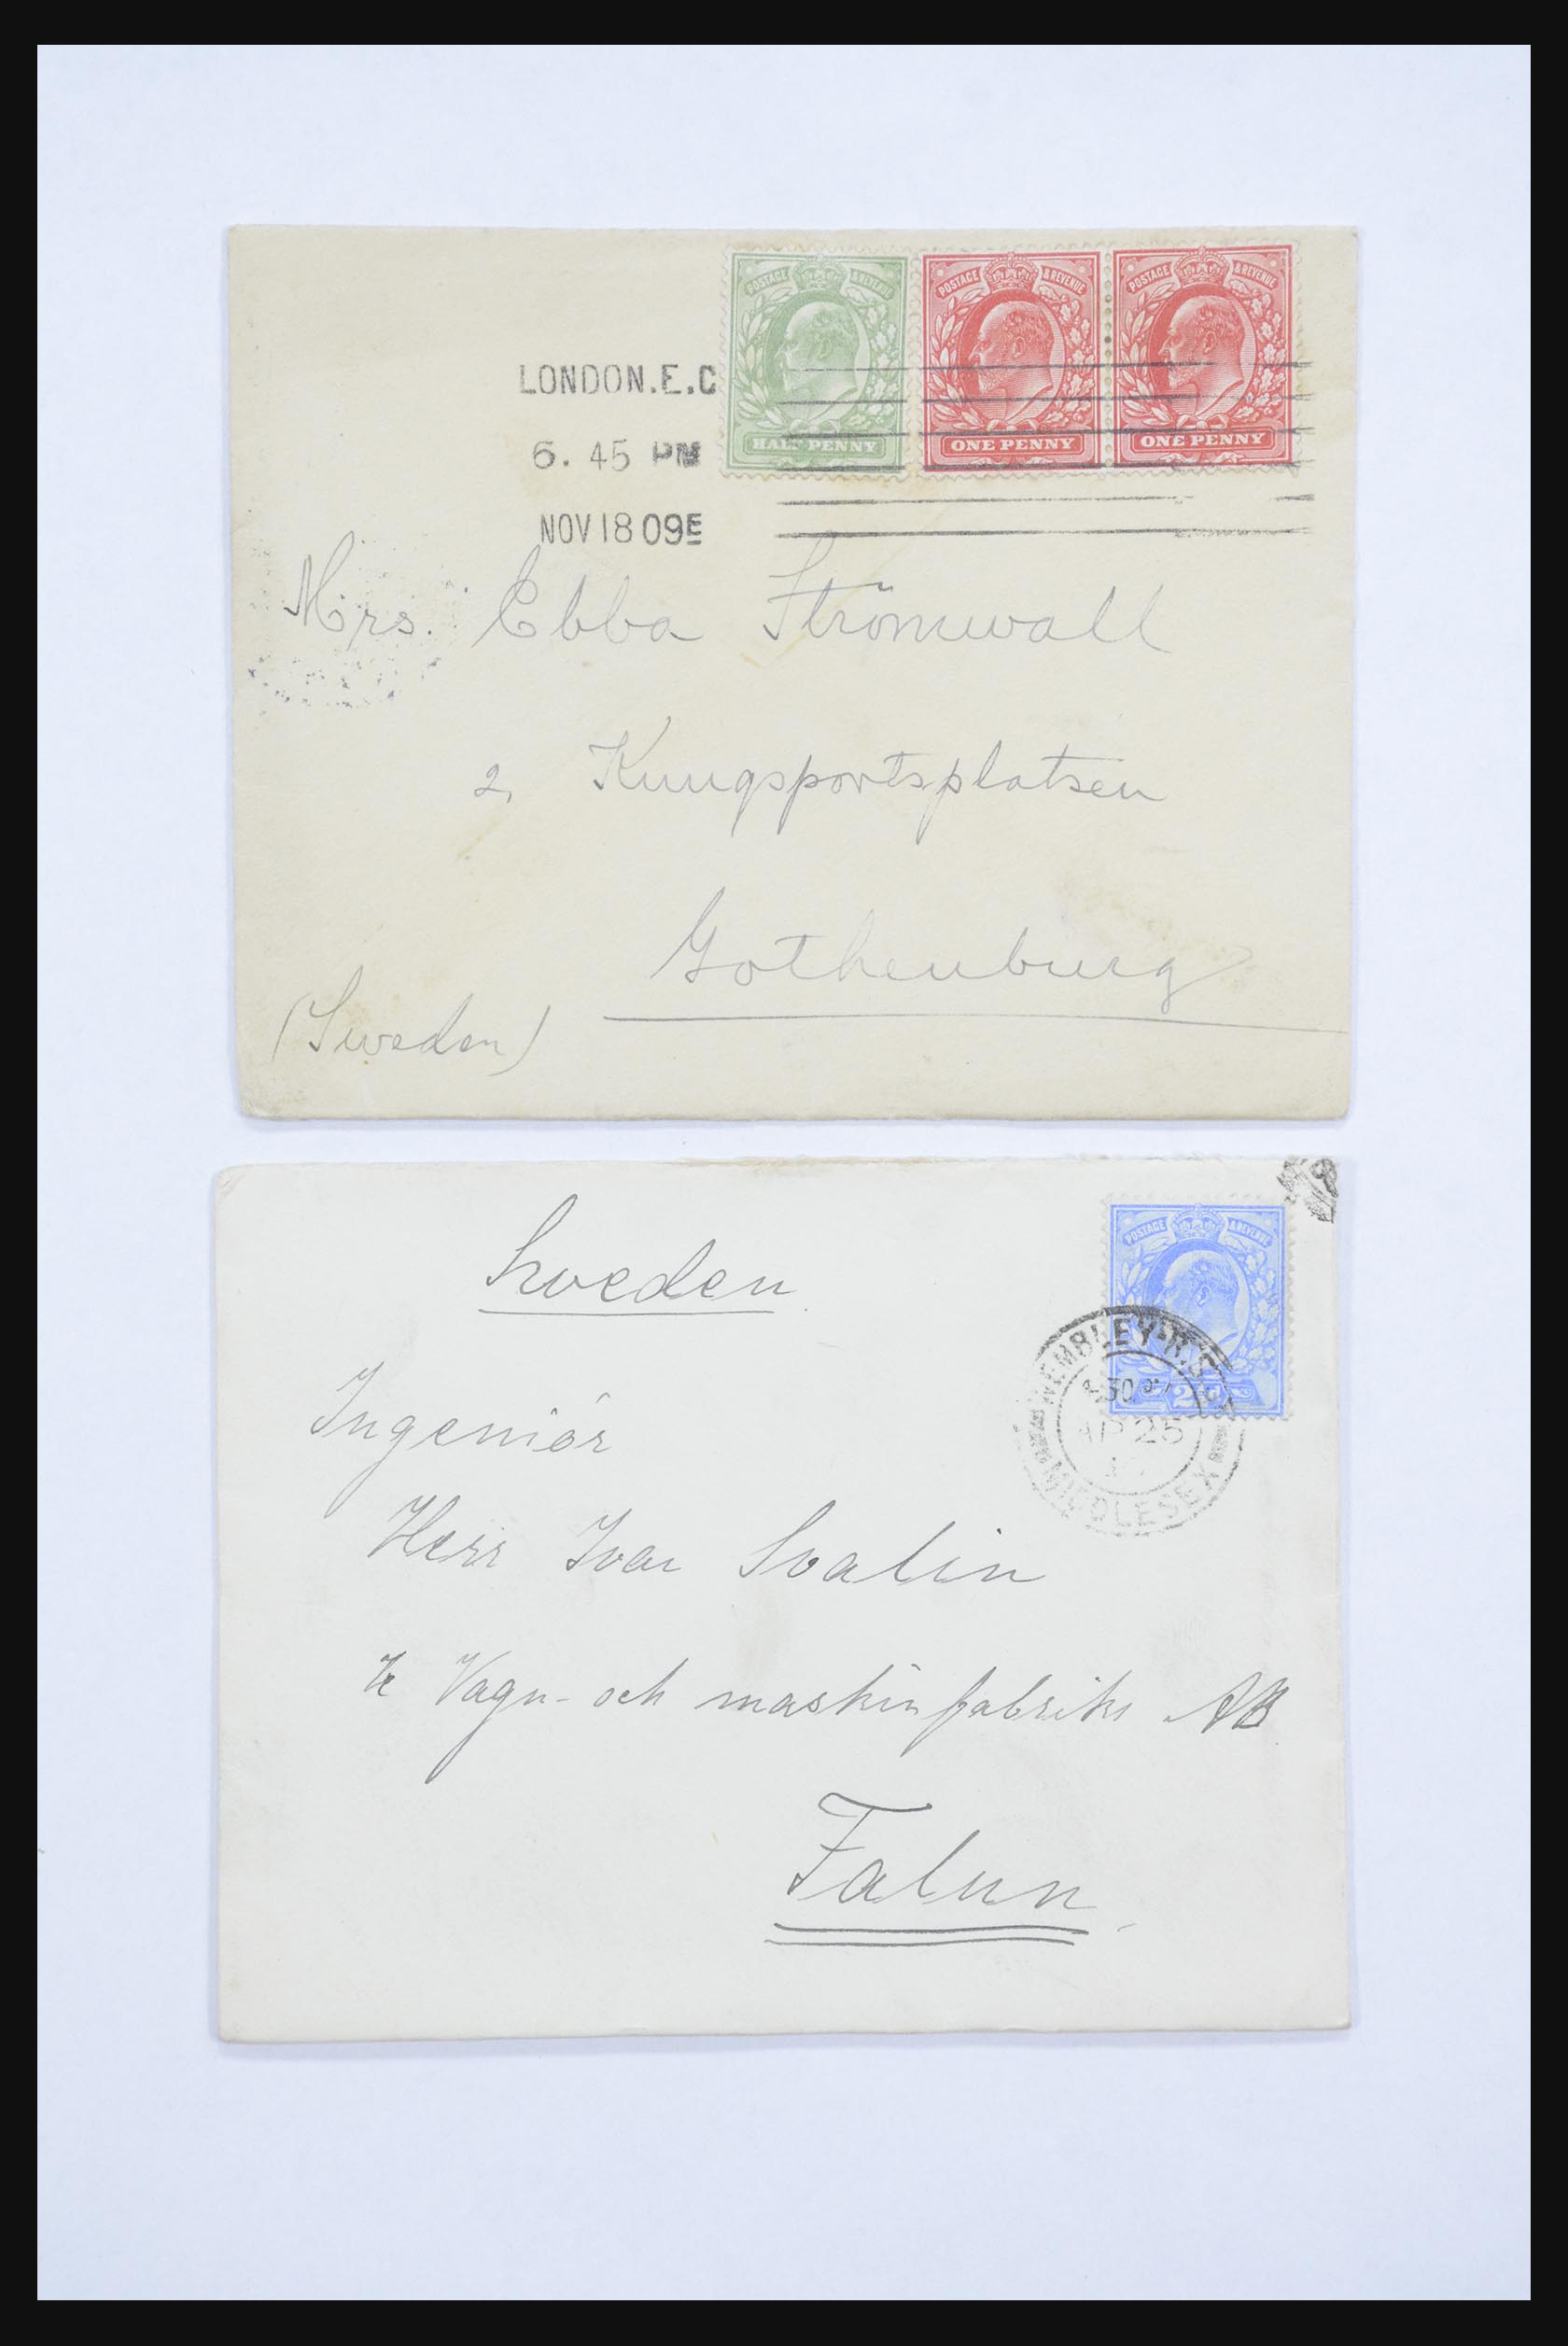 POSTAGE & REVENUE POSTAGE & REVENUE POSTAGE & REVENUE
LONDON.E.C
HALF PENNY ONE PENNY ONE PENNY
6. 45 PM
NOV 18 09E
Mrs. Ebba Strömwall
2, Kungsportsplatsen
Gothenburg
(Sweden)
POSTAGE & REVENUE
Sweden
WEMBLEY
30
AP 25
MIDDLESEX
Ingeniör
Herr Ivar Svalin
Vagn- och maskinfabriks AB
Falun